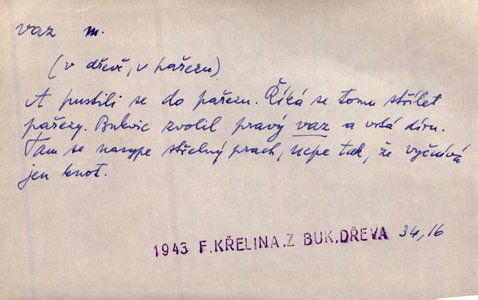 vaz m.
(v dřevě, v pařezu)
A pustili se do pařezu. Říká se tomu střílet
pařezy. Bukvic zvolil pravý vaz a vrtá díru.
Tam se nasype střelný prach, ucpe tak, že vyčnívá
jen knot.
1943 F.KŘELINA,Z BUK.DŘEVA 34,16